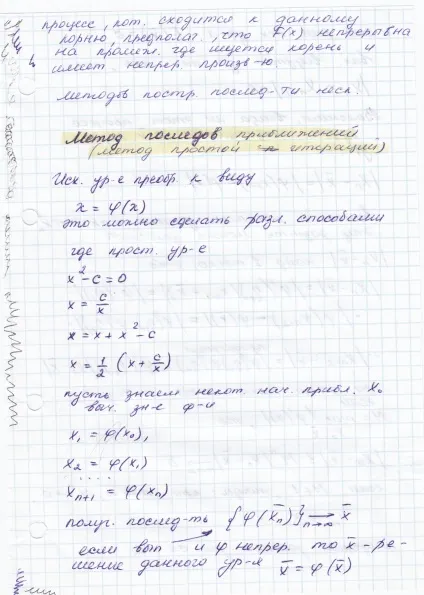 процесс, кот. сходится к данному
корню, предполаг, что f(x) непрерывна
на промеж. где ищется корень и
имеет непрер произв-ю
методов постр. послед-ти неск.
Метод последов приближений
(метод простой итерации)
Исх. ур-е преобр к виду
x = φ(x)
это можно сделать разл. способами
где прост. ур-е
x² - c = 0
x = c/x
x = x + x² - c
x = 1/2 (x + c/x)
пусть знаем некот. нач. прибл. x₀
выч. зн-е ф-и
x₁ = φ(x₀),
x₂ = φ(x₁)
. . . . .
xₙ₊₁ = φ(xₙ)
получ. послед-ть {φ(x̄ₙ)} ⟶ x̄
n→∞
если вып и φ непрер. то x̄ - ре-
шение данного ур-я x̄ = φ(x̄)